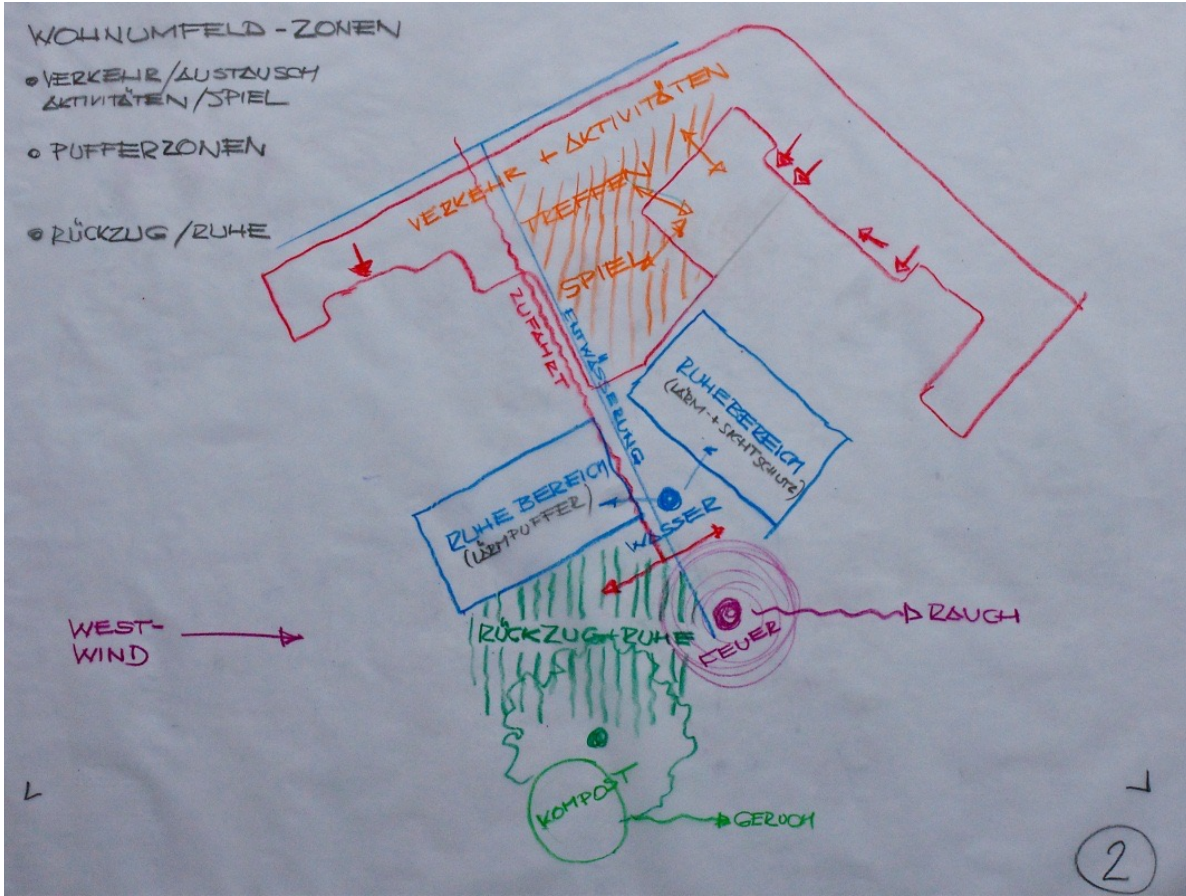 WOHNUMFELD - ZONEN
• VERKEHR/AUSTAUSCH
AKTIVITÄTEN/SPIEL
• PUFFERZONEN
• RÜCKZUG/RUHE
VERKEHR + AKTIVITÄTEN
TREFFEN
SPIEL
ZUFAHRT
ENTWÄSSERUNG
RUHEBEREICH
(LÄRM-+SICHTSCHUTZ)
RUHE BEREICH
(LÄRMPUFFER)
WASSER
RÜCKZUG+RUHE
FEUER
RAUCH
WEST-
WIND
KOMPOST
GERUCH
2